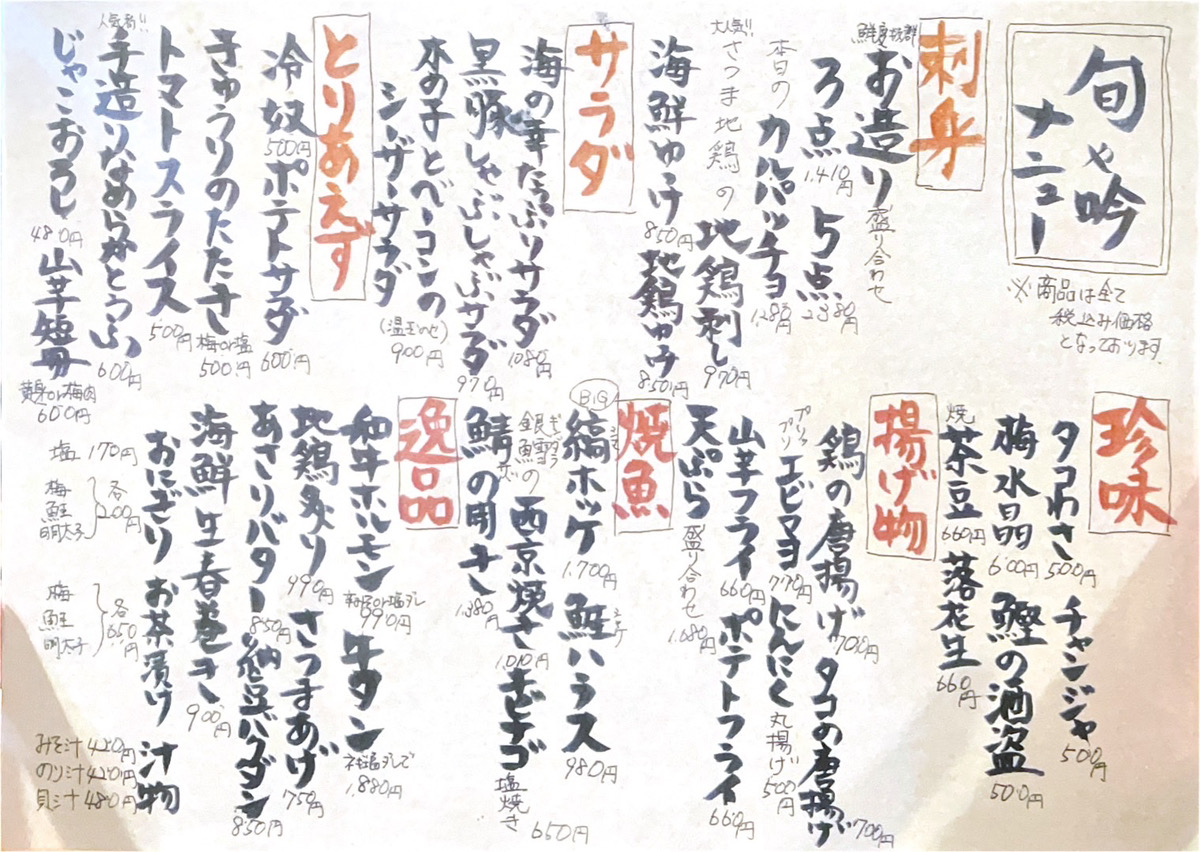 旬や吟
メニュー
※商品は全て
税込み価格
となっております。
刺身
鮮度抜群
お造り盛り合わせ
3点 1,410円 5点 2,380円
本日のカルパッチョ 1,280円
大人気!! さつま地鶏の地鶏刺し 970円
海鮮ゆっけ 850円 地鶏ゆっけ 850円
サラダ
海の幸たっぷりサラダ 1,080円
黒豚しゃぶしゃぶサラダ 970円
木の子とベーコンの
シーザーサラダ (温玉のせ) 900円
とりあえず
冷奴 500円 ポテトサラダ 600円
きゅうりのたたき 梅or塩 500円
トマトスライス 500円
人気者!! 手造りなめらかとうふ 600円
じゃこおろし 480円 山芋短冊 黄身or梅肉 600円
珍味
タコわさ 500円 チャンジャ 500円
梅水晶 600円 鰹の酒盗 500円
焼茶豆 660円 落花生 660円
揚げ物
鶏の唐揚げ 700円 タコの唐揚げ 700円
プリップリ エビマヨ 770円 にんにく丸揚げ 500円
山芋フライ 660円 ポテトフライ 660円
天ぷら盛り合わせ 1,680円
焼魚
BIG 縞ホッケ 1,700円 鮭ハラス 980円
銀鱈の西京焼き 1,010円 キビナゴ塩焼き 650円
鯖の開き 1,380円
逸品
和牛ホルモン 990円 牛タン 1,880円
地鶏炙り 990円 さつまあげ 750円
あさりバター 850円 納豆バクダン 850円
海鮮生春巻き 900円
おにぎり お茶漬け 汁物
塩 170円
梅
鮭
明太子
各200円
梅
鮭
明太子
各650円
みそ汁 420円
のり汁 420円
貝汁 480円